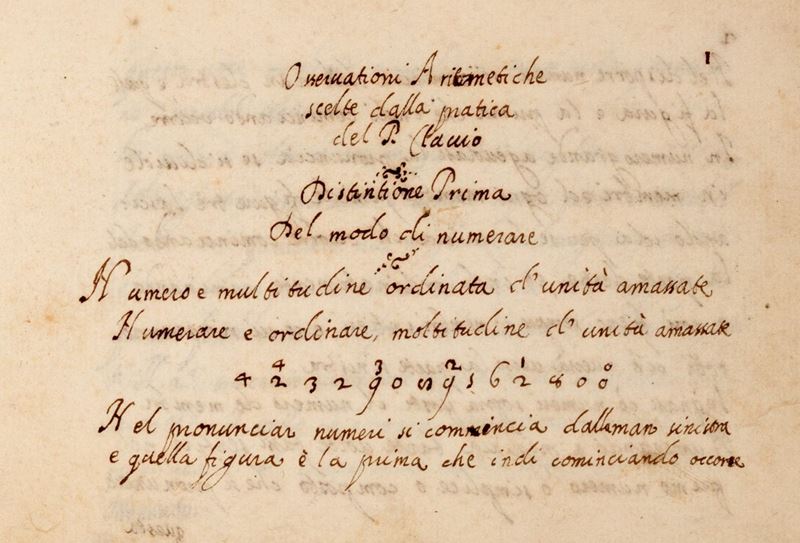 1
Osservationi Aritmetiche
scelte dalla pratica
del P. Clavio
Distintione Prima
Del modo di numerare
Numero e multitudine ordinata d'unità amassate
Numerare e ordinare, moltitudine d'unità amassate
4 3 2 1 0
4 2 3 2 9 0 8 9 1 6 2 8 0 0
Nel pronunciar numeri si commincia dalla man sinistra
e quella figura è la prima che indi cominciando occorre
questa